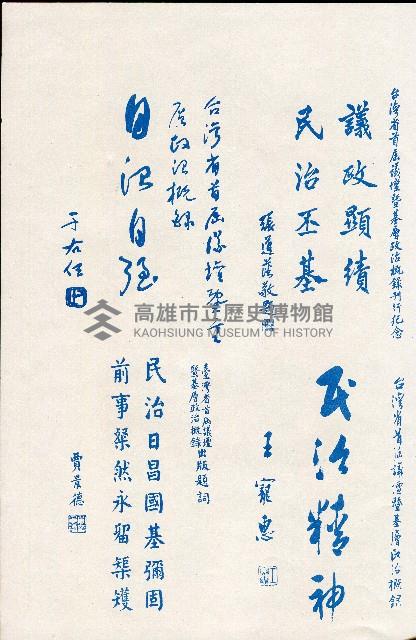 台灣省首屆議壇暨基層政治概錄刊行紀念
議政顯績
民治丕基
張道藩敬題
台灣省首屆議壇暨基層政治概錄
民治精神
王寵惠
台灣省首屆議壇暨基
層政治概錄
自治自強
于右任
臺灣省首屆議壇
暨基層政治概錄出版題詞
民治日昌國基彌固
前事粲然永留榘矱
賈景德
高雄市立歷史博物館
KAOHSIUNG MUSEUM OF HISTORY